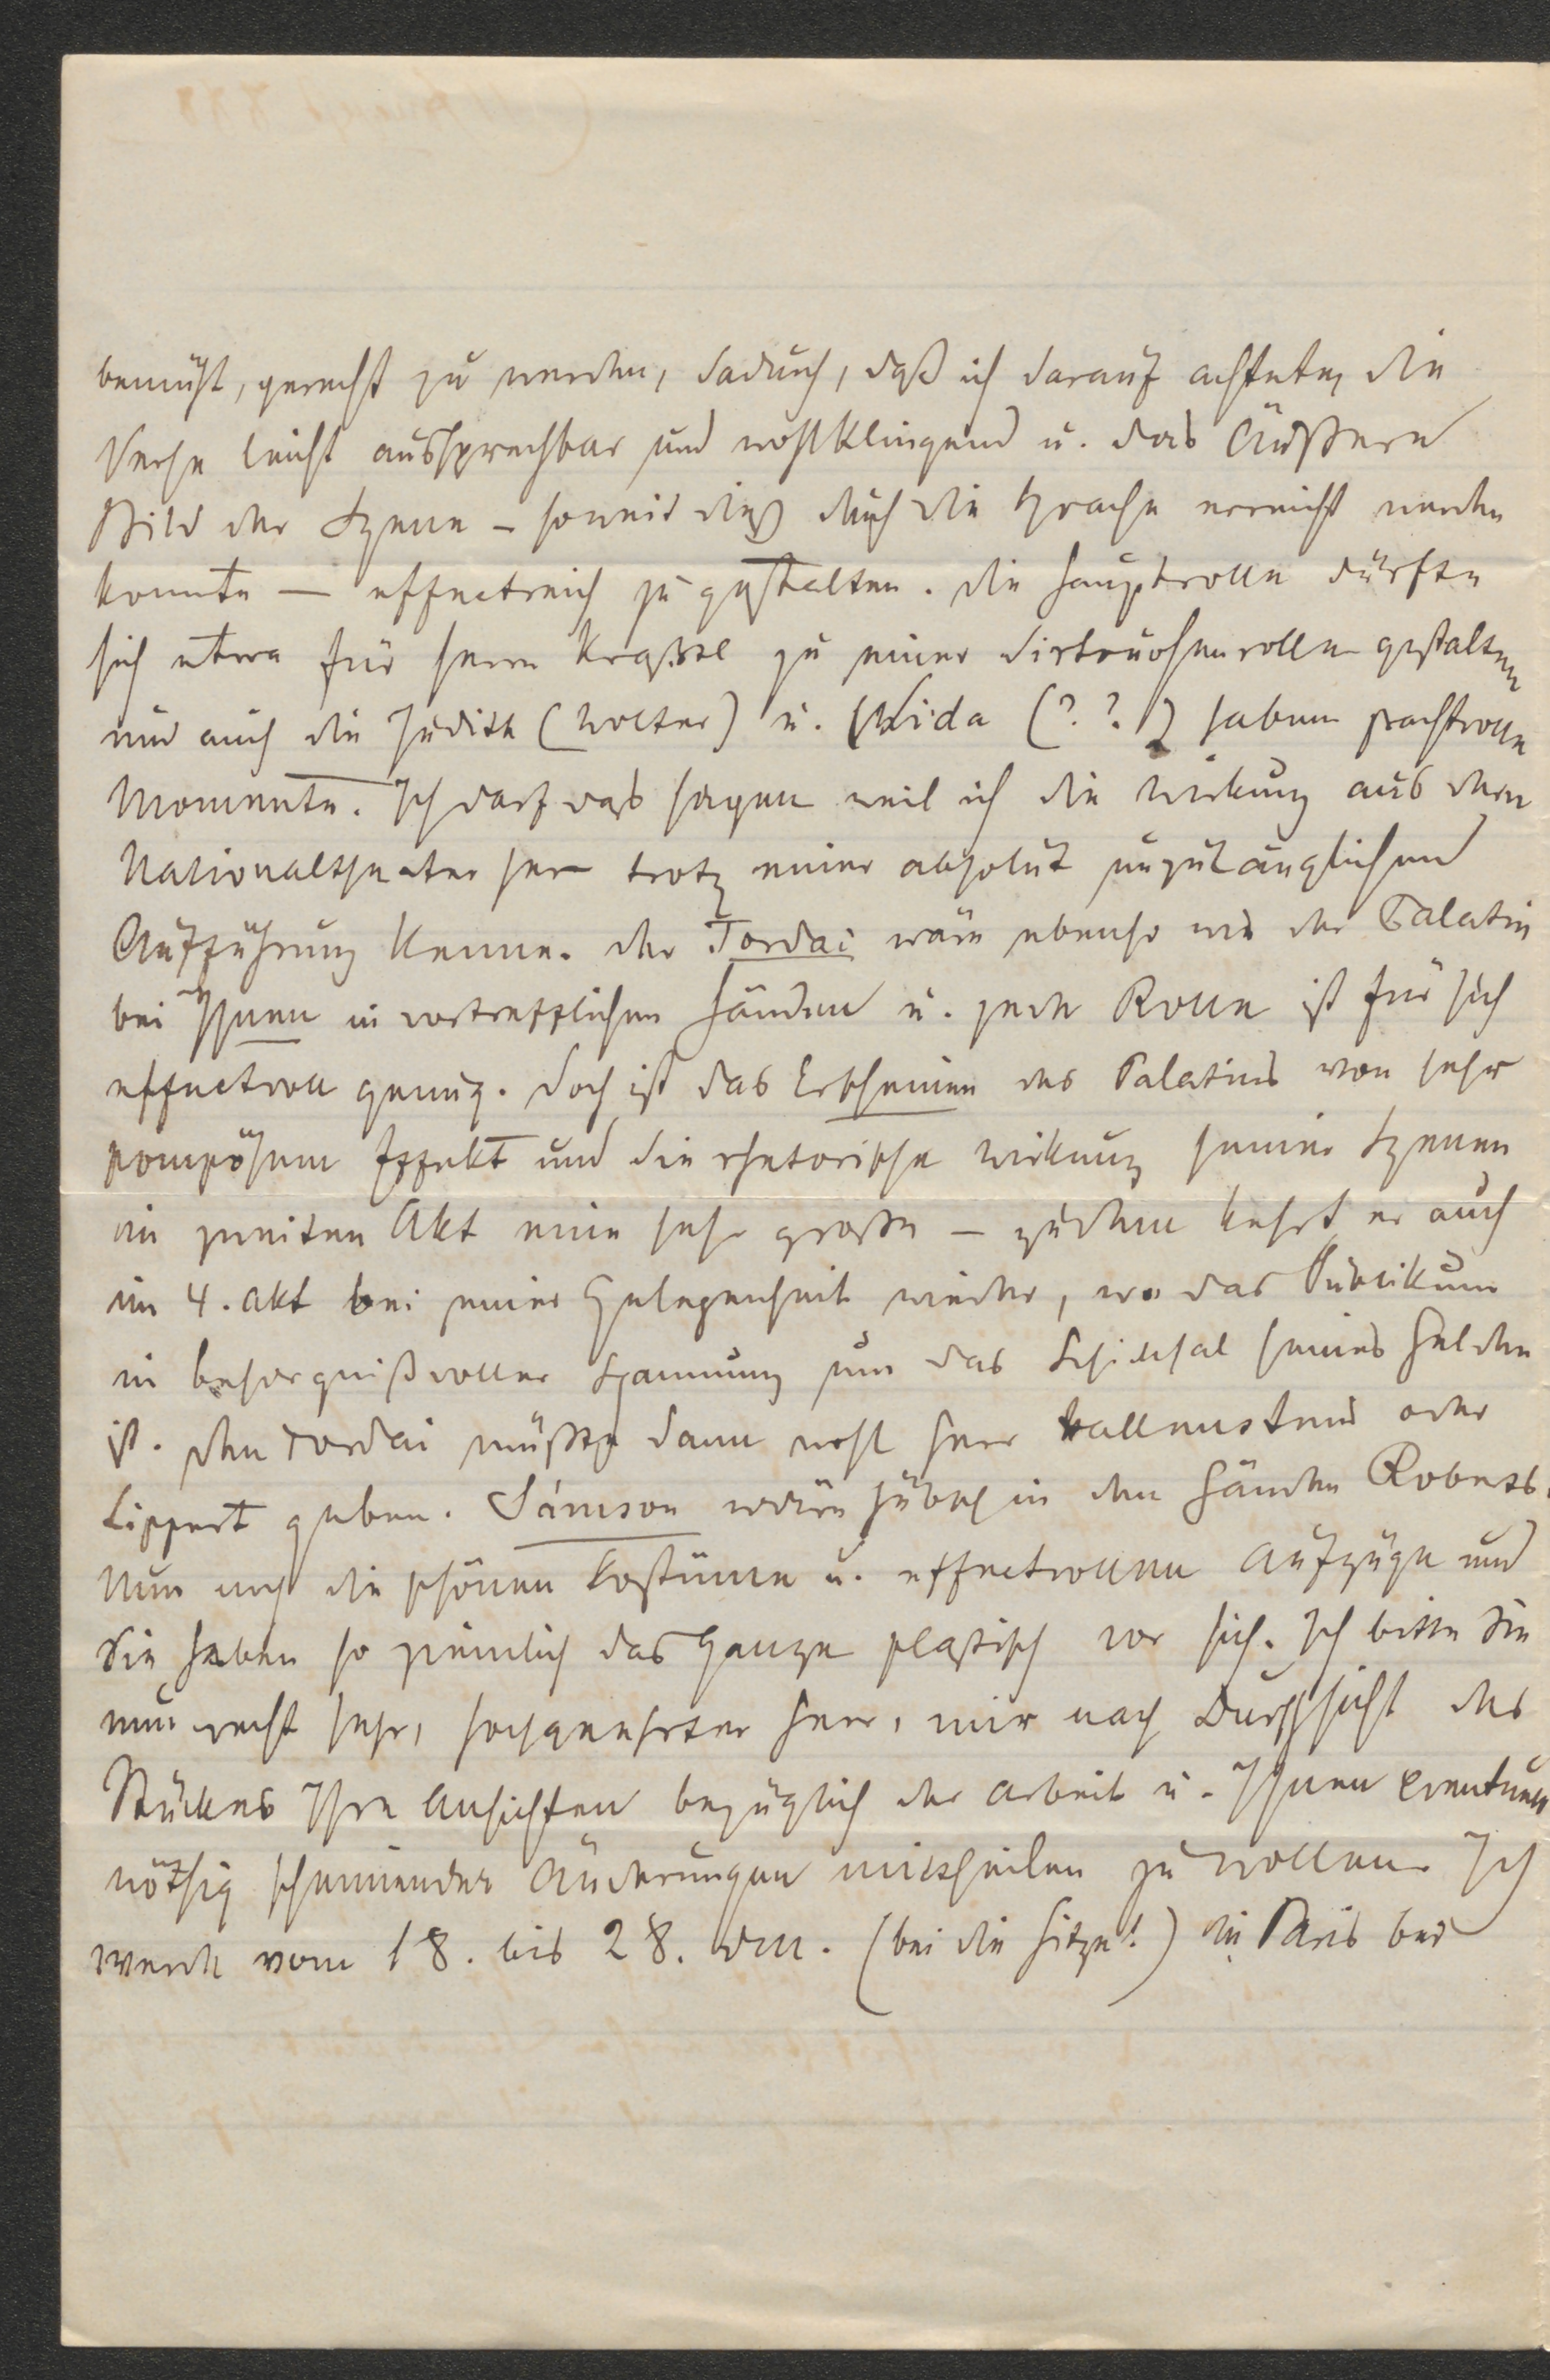 bemüht, gerecht zu werden, dadurch, daß ich darauf achtete, die
Verse leicht aussprechbar und wohlklingend u. das Äußere
Bild der Szene – soweit dieß durch die Sprache erreicht werden
konnte – effectreich zu gestalten. Die Hauptrolle dürfte
sich etwa für Herrn Krastel zu einer Virtuosenrolle gestalten
und auch die Judith (Wolter) u. (??) haben prachtvolle
Momente. Ich darf das sagen weil ich die Wirkung aus dem
Nationaltheater her trotz einer absolut unzulänglichen
Aufführung kenne. Der Tordai wäre ebenso wie der Palatin
bei Ihnen in vortrefflichen Händen u. jede Rolle ist für sich
effectvoll genug. Doch ist das Erscheinen des Palatins von sehr
pompösem Effekt und die rhetorische Wirkung seiner Szenen
im zweiten Akt eine sehr große – zudem kehrt er auch
im 4. Akt bei einer Gelegenheit wieder, wo das Publikum
in besorgnißvoller Spannung um das Schicksal seines Helden
ist. Den Tordai müßte dann wohl Herr Hallenstein oder
Lippert geben. Sámson wäre hübsch in den Händen Roberts.
Nun noch die schönen Kostüme u. effectvollen Aufzüge und
Sie haben so ziemlich das Ganze plastisch vor sich. Ich bitte Sie
nun recht sehr, hochgeehrter Herr, mir nach Durchsicht des
Stückes Ihre Ansichten bezüglich der Arbeit u. Ihnen eventuell
nöthig scheinender Änderungen mittheilen zu wollen. Ich
werde vom 18. bis 28. (bei die Hitze!) in Paris bei